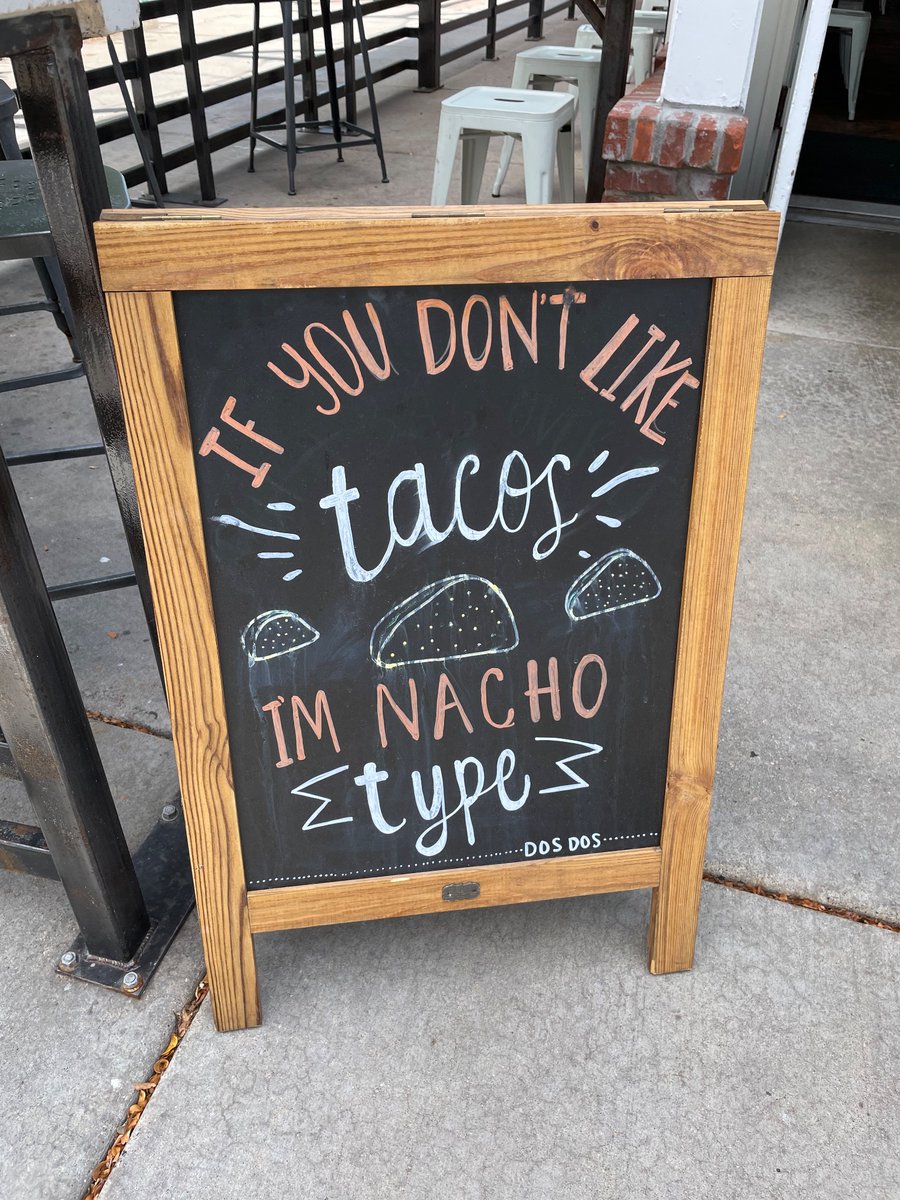 IF YOU DON'T LIKE
tacos
I'M NACHO
type
DOS DOS